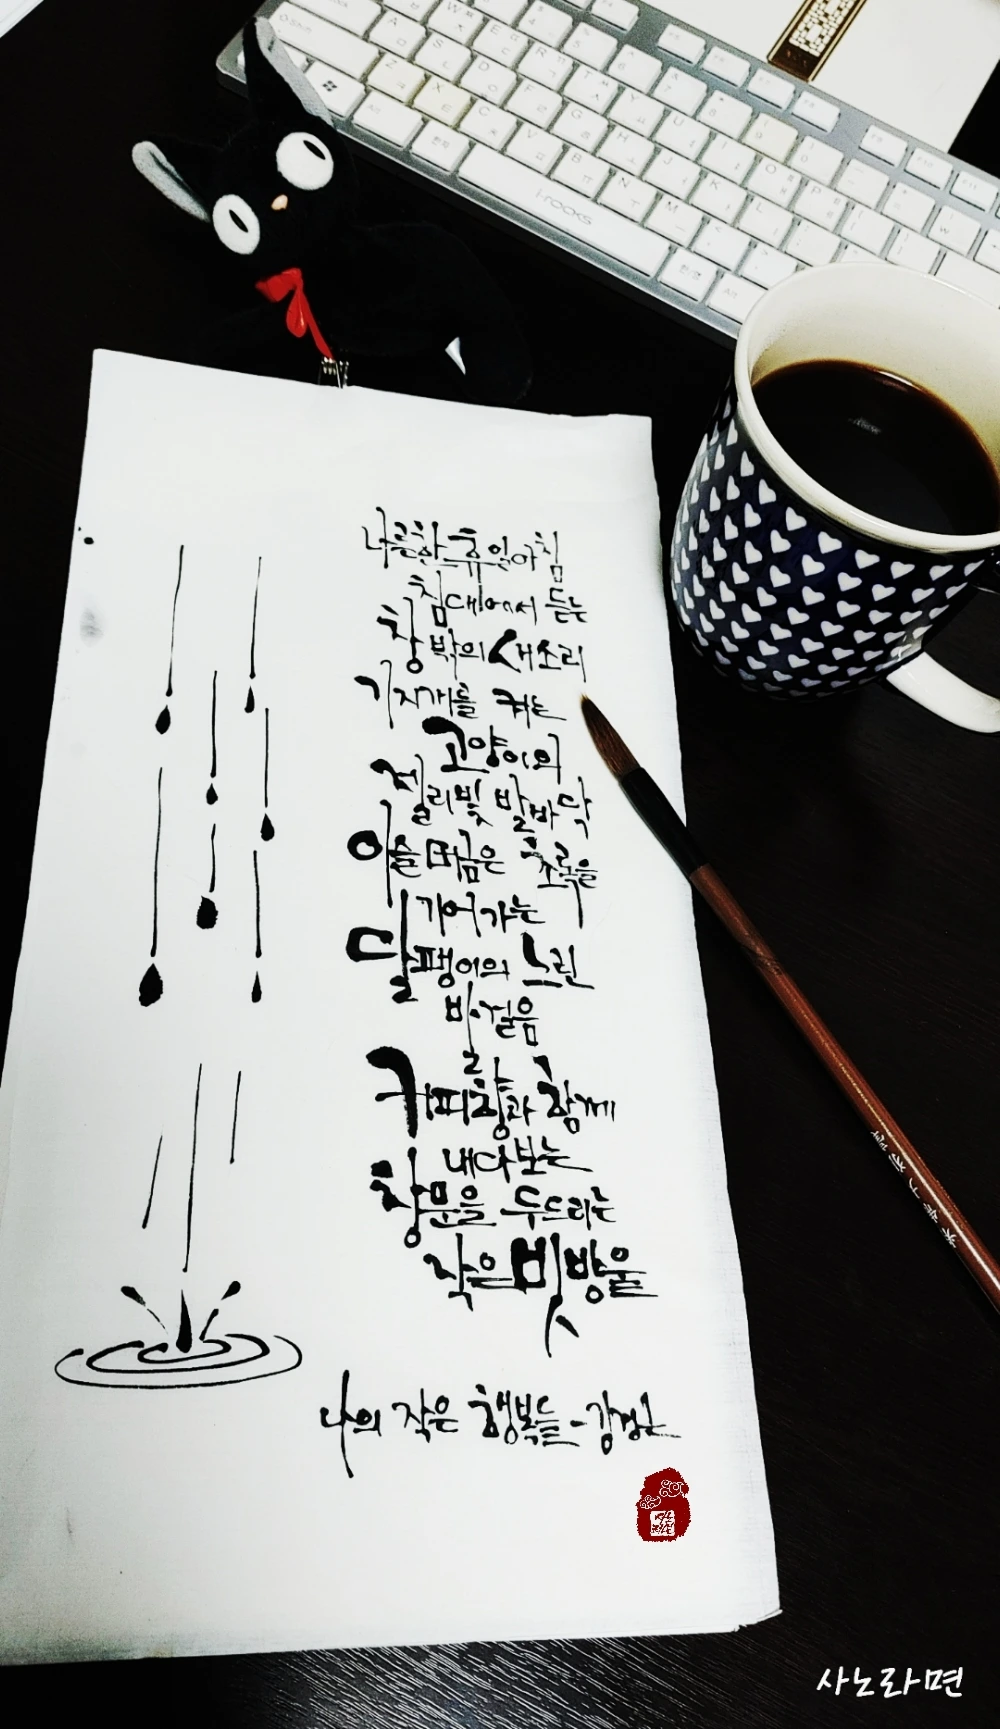 i-rocks
나른한 휴일 아침
침대에서 듣는
창밖의 새소리
기지개를 켜는
고양이의
젤리빛 발바닥
이슬 머금은 초록을
기어가는
달팽이의 느린
발걸음
커피향과 함께
내다보는
창문을 두드리는
작은 빗방울
나의 작은 행복들 - 강경근
사노라면